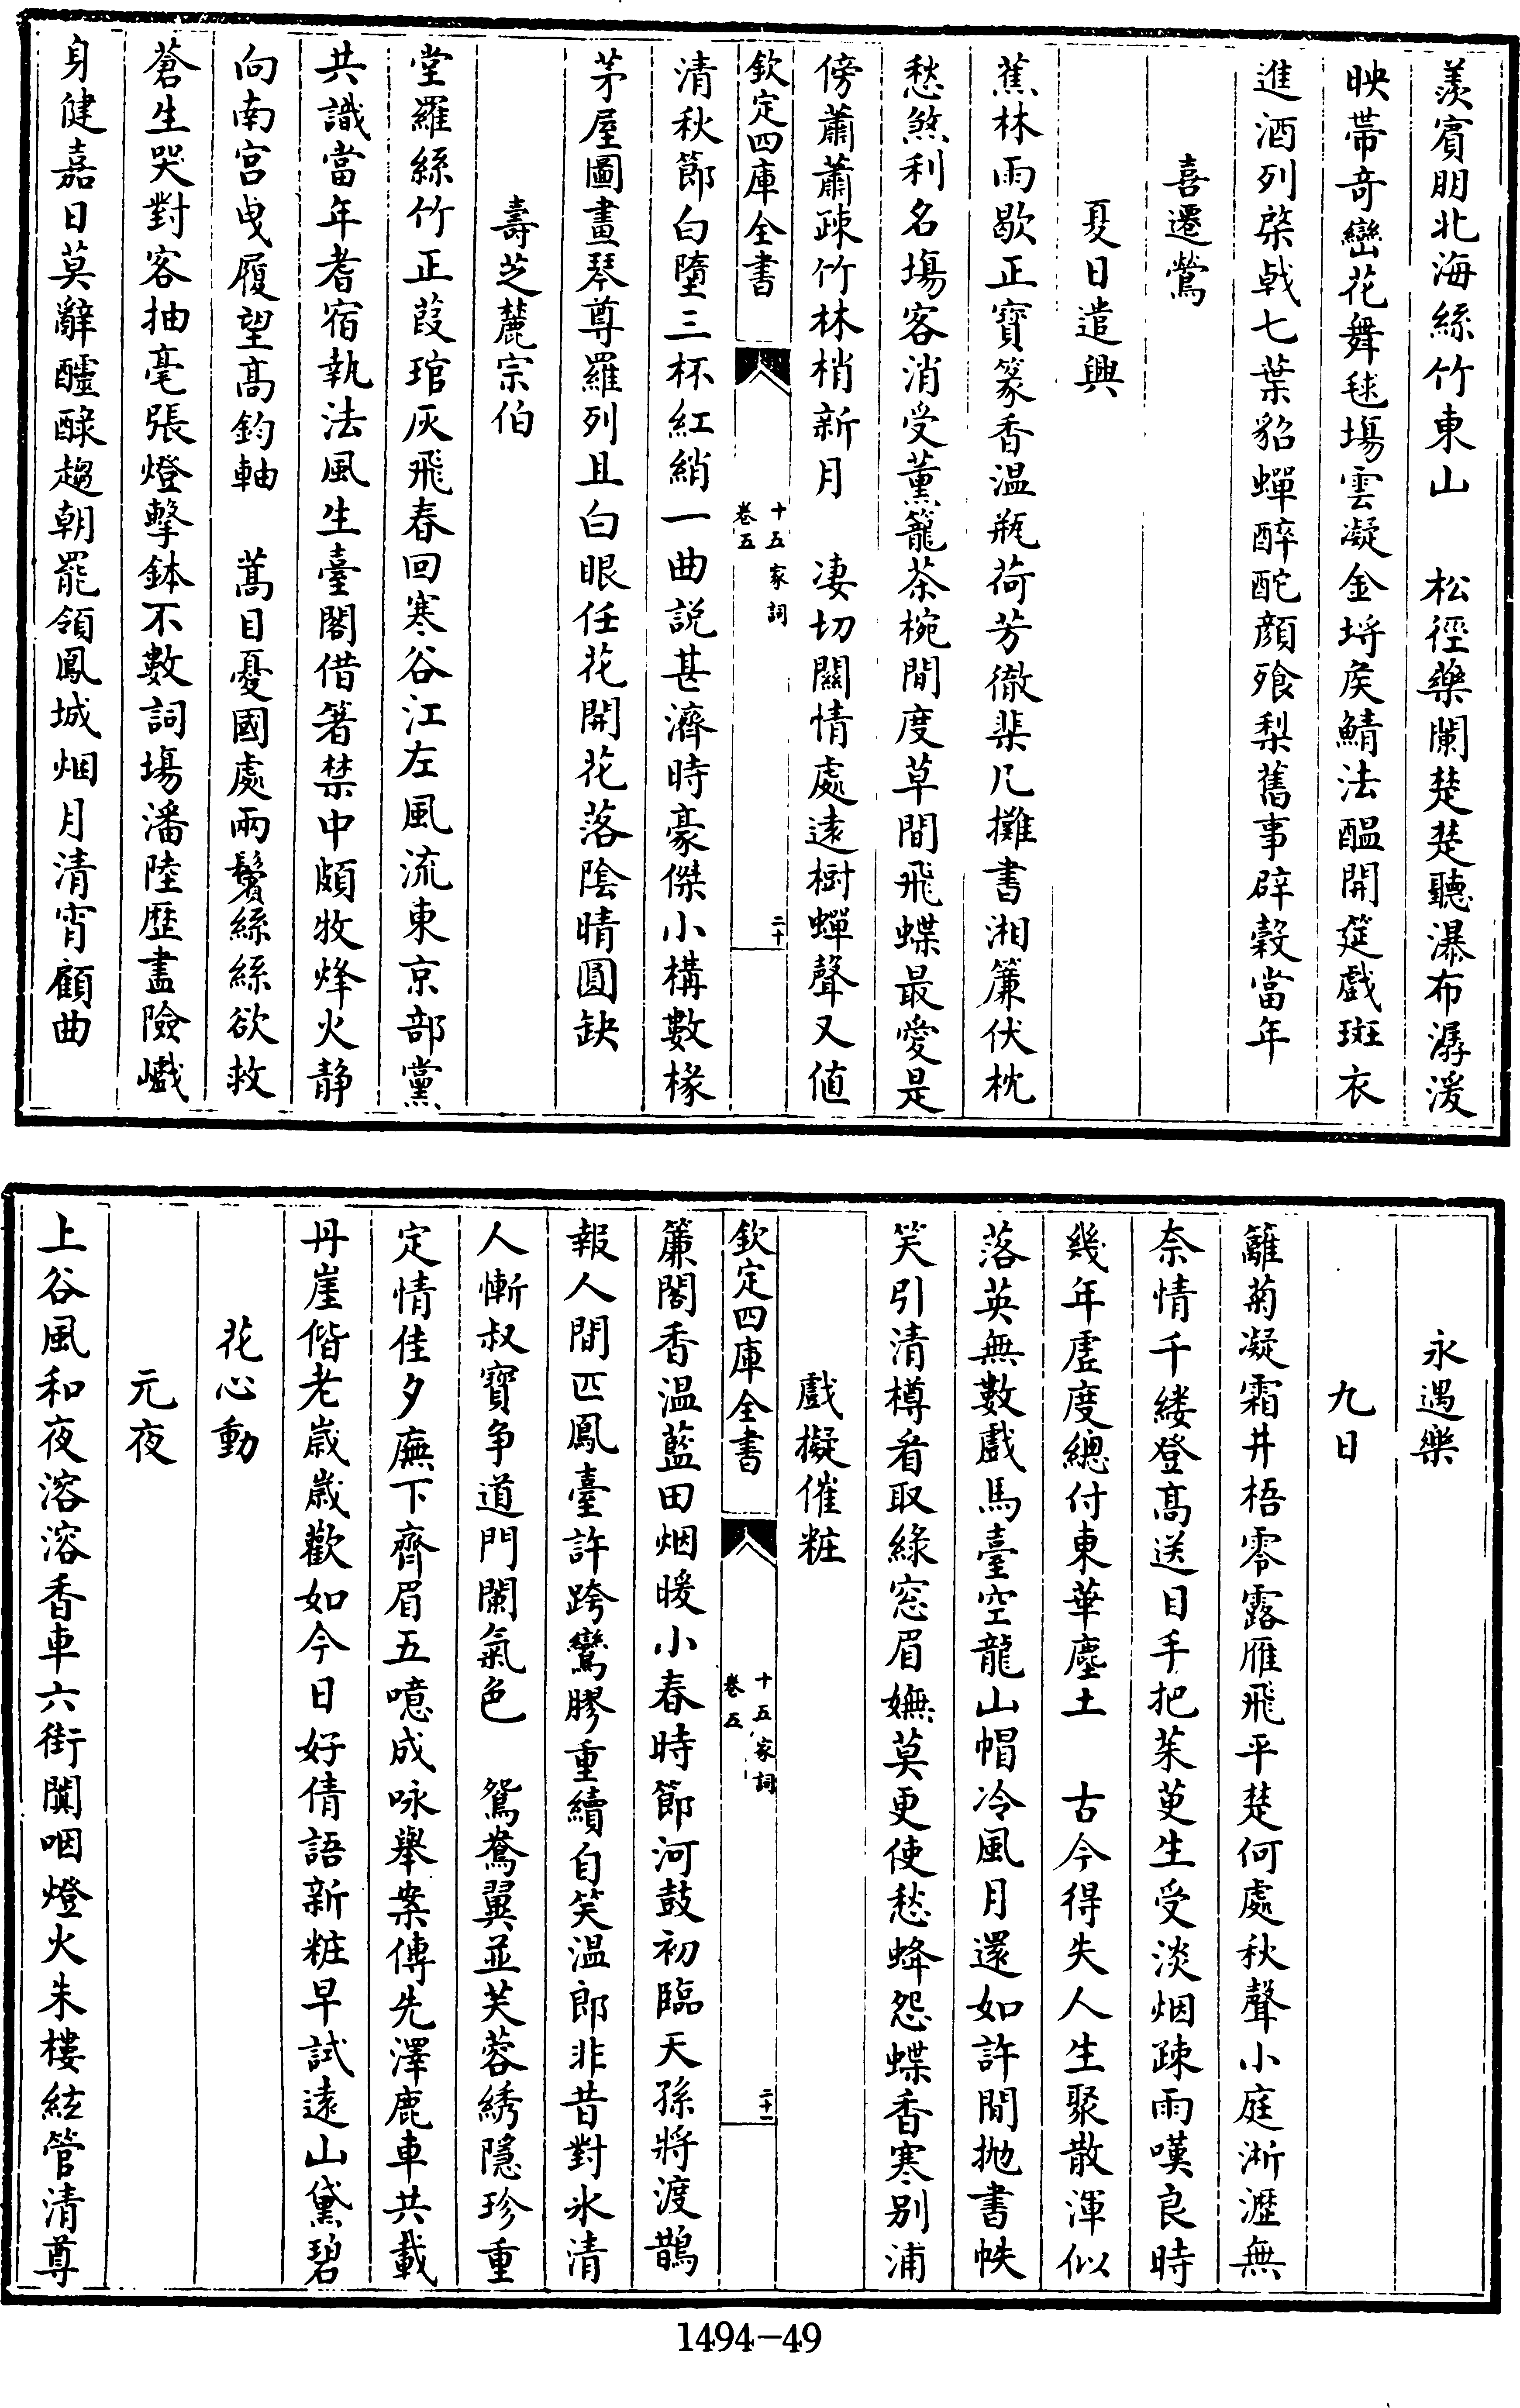 羨賓朋北海絲竹東山　松徑藥闌楚楚聽瀑布潺湲
映帶奇巒花舞毬場雲凝金埒矦鯖法醖開筵戲斑衣
進酒列棨㦸七葉貂蟬醉酡顔飱梨舊事辟穀當年
喜遷鶯
夏日遣興
蕉林雨歇正寶篆香温瓶荷芳徹棐几攤書湘簾伏枕
愁煞利名塲客消受薰籠茶椀閒度草間飛蝶最愛是
傍蕭蕭疎竹林梢新月　凄切關情處逺樹蟬聲又値
欽定四庫全書
十五家詞
卷五
二十
清秋節白墮三杯紅綃一曲説甚濟時豪傑小構數椽
茅屋圖畫琴尊羅列且白眼任花開花落陰晴圓缺
壽芝麓宗伯
堂羅絲竹正葭琯灰飛春回寒谷江左風流東京部黨
共識當年耆宿執法風生臺閣借箸禁中頗牧烽火静
向南宫曵履望髙鈞軸　蒿目憂國處兩鬢絲絲欲救
蒼生哭對客抽毫張燈擊鉢不數詞塲潘陸歴盡險巇
身健嘉日莫辭醽醁趨朝罷領鳳城烟月清宵顧曲
永遇樂
九日
籬菊凝霜井梧零露雁飛平楚何處秋聲小庭淅瀝無
奈情千縷登髙送目手把茱萸生受淡烟疎雨嘆良時
幾年虚度總付東華塵土　古今得失人生聚散渾似
落英無數戲馬臺空龍山帽冷風月還如許閒抛書帙
笑引清樽看取綠窓眉嫵莫更使愁蜂怨蝶香寒别浦
戲擬催粧
欽定四庫全書
十五家詞
卷五
二十一
簾閣香温藍田烟暖小春時節河鼓初臨天孫將渡鵲
報人間匹鳳臺許跨鸞膠重續自笑温郎非昔對氷清
人慚叔寳争道門闌氣色　鴛鴦翼並芙蓉綉隱珍重
定情佳夕廡下齊眉五噫成咏舉案傳先澤鹿車共載
丹崖偕老歳歳歡如今日好倩語新粧早試逺山黛碧
花心動
元夜
上谷風和夜溶溶香車六街闐咽燈火朱樓絃管清尊
1494-49